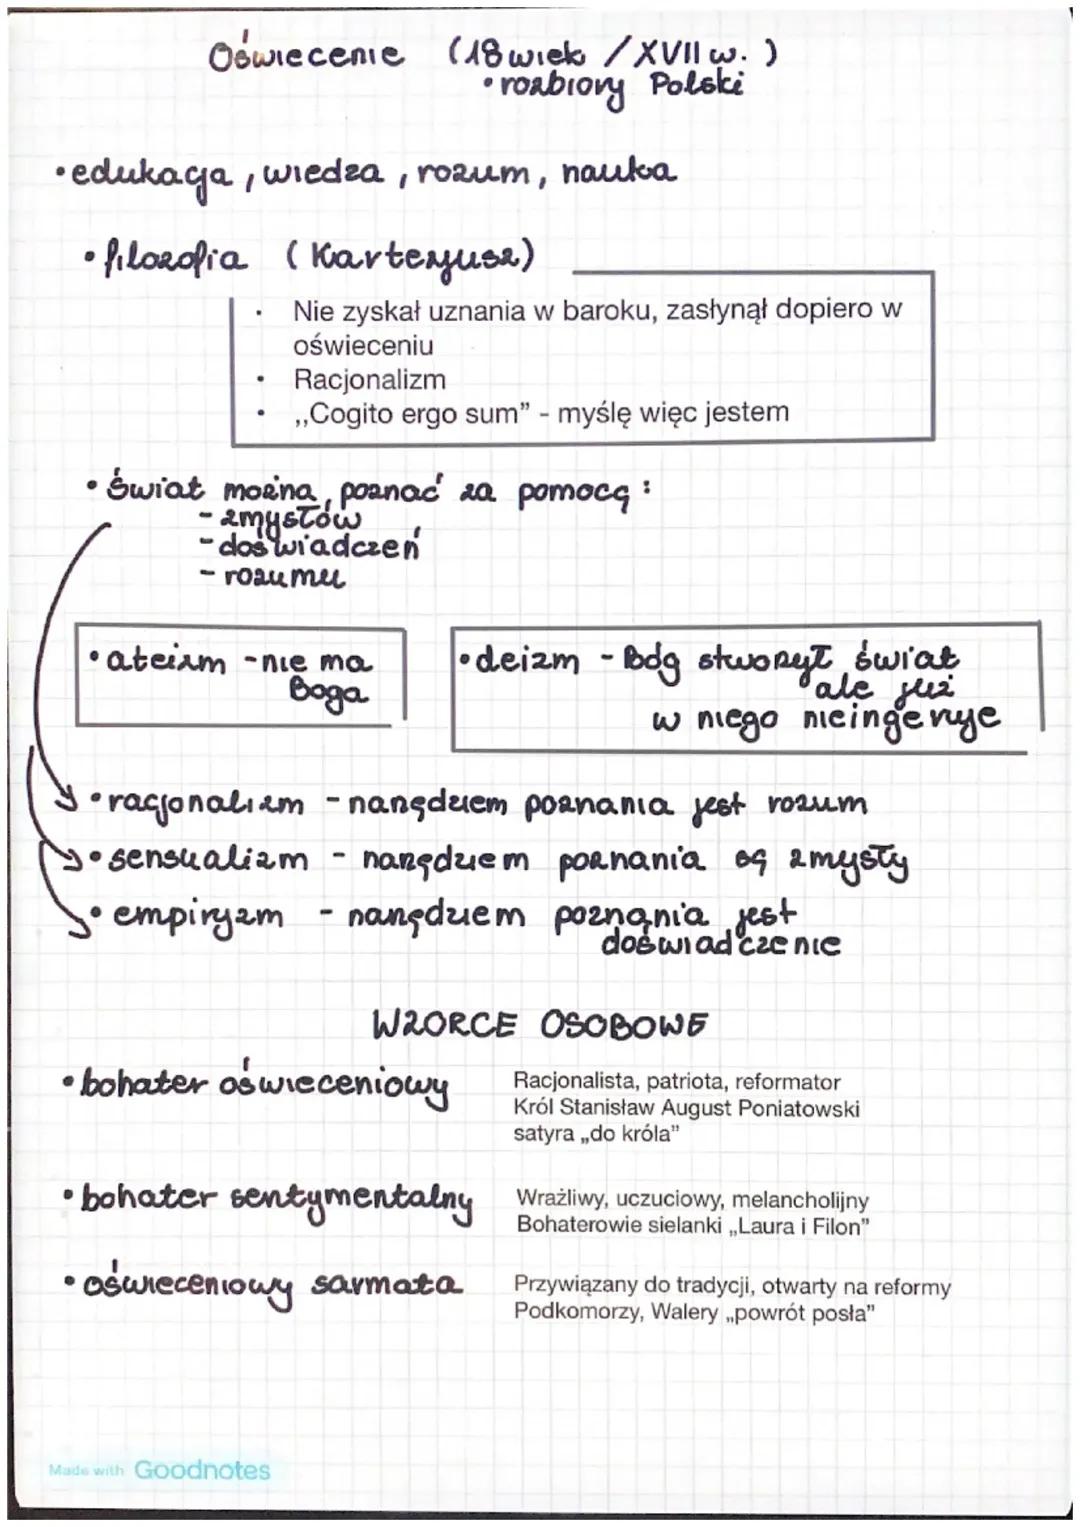 Oświecenie (18 wiek / XVII w. )
• rozbiory Polski
• edukacja, wiedza, rozum, nauka
• filozofia (Kartezjusz)
• Nie zyskał uznania w baroku, zasłynął dopiero w
oświeceniu
• Racjonalizm
• ,,Cogito ergo sum” - myślę więc jestem
• Świat można poznać za pomocą :
- zmysłów
- doświadczeń
- rozumu
• ateizm - nie ma
Boga
• deizm - Bóg stworzył świat
ale już
w niego nieingeruje
• racjonalizm - narzędziem poznania jest rozum
• sensualizm - narzędziem poznania są zmysły
• empiryzm - narzędziem poznania jest
doświadczenie
WZORCE OSOBOWE
• bohater oświeceniowy
Racjonalista, patriota, reformator
Król Stanisław August Poniatowski
satyra „do króla”
• bohater sentymentalny
Wrażliwy, uczuciowy, melancholijny
Bohaterowie sielanki „Laura i Filon”
• oświeceniowy sarmata
Przywiązany do tradycji, otwarty na reformy
Podkomorzy, Walery „powrót posła”
Made with Goodnotes